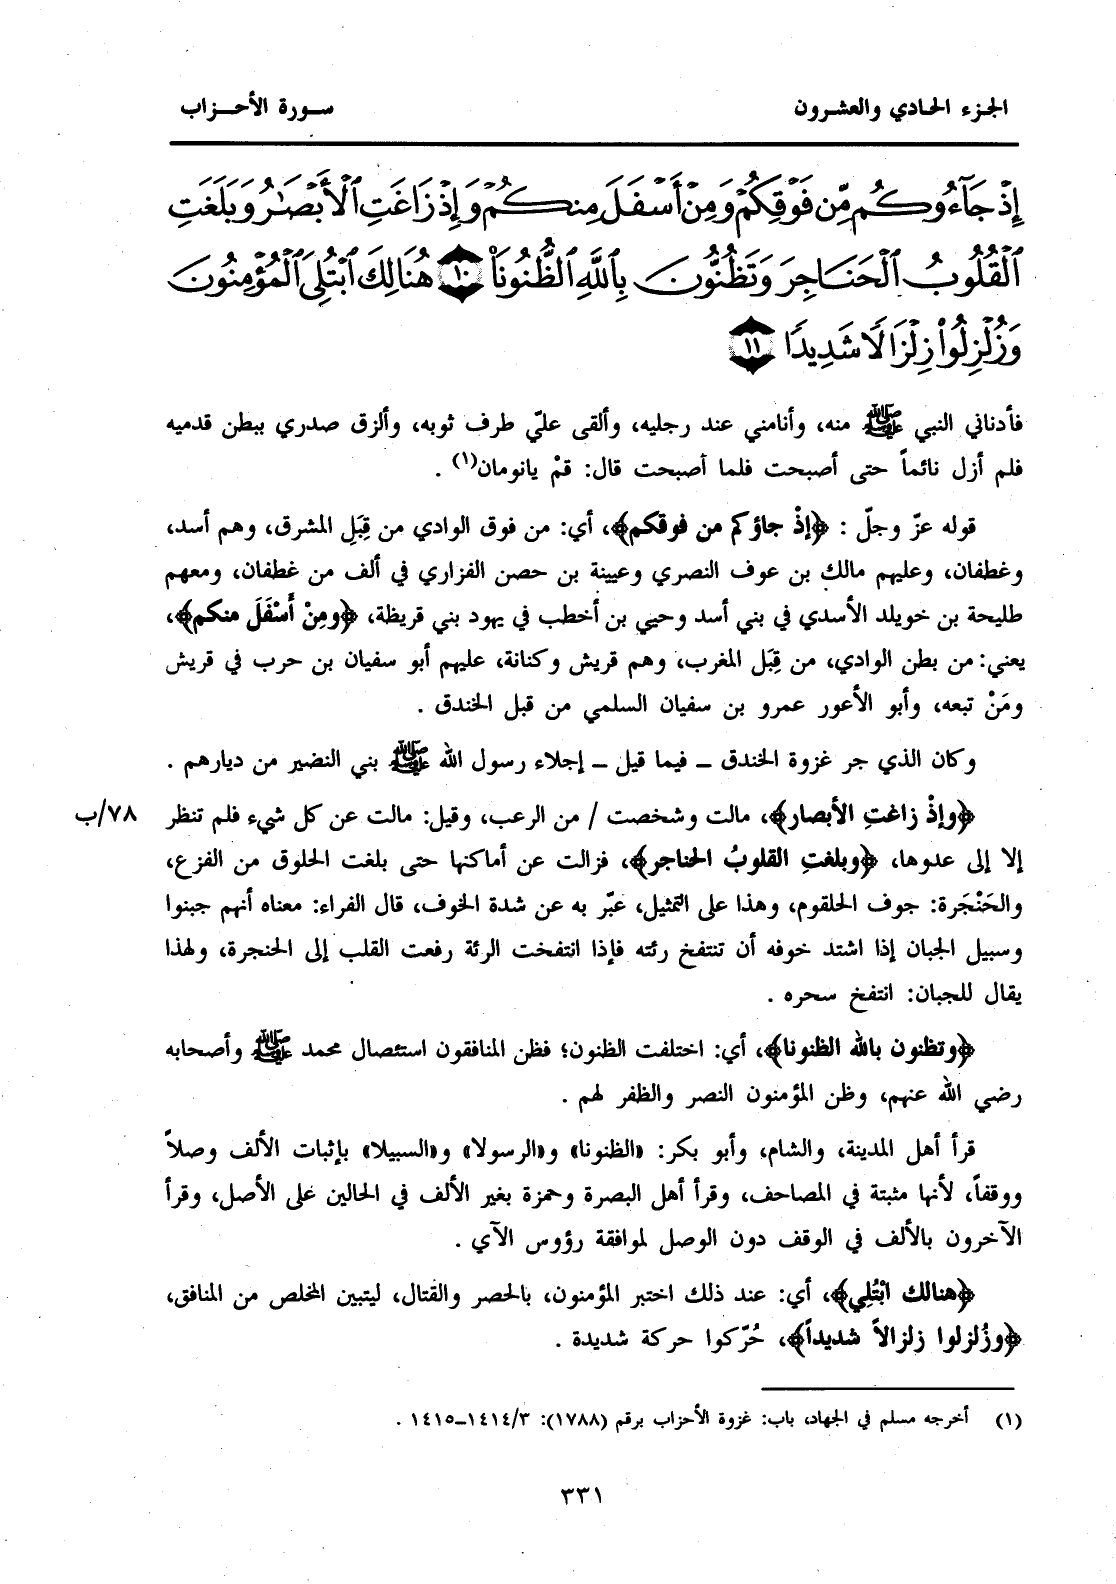 الجزء الحادي والعشرون
سورة الأحزاب
إِذْ جَآءُوكُم مِّن فَوْقِكُمْ وَمِنْ أَسْفَلَ مِنكُمْ وَإِذْ زَاغَتِ ٱلْأَبْصَٰرُ وَبَلَغَتِ
ٱلْقُلُوبُ ٱلْحَنَاجِرَ وَتَظُنُّونَ بِٱللَّهِ ٱلظُّنُونَا۠ ١٠ هُنَالِكَ ٱبْتُلِىَ ٱلْمُؤْمِنُونَ
وَزُلْزِلُوا۟ زِلْزَالًا شَدِيدًا ١١
فأدناني النبي ﷺ منه، وأنامني عند رجليه، وألقى عليّ طرف ثوبه، وألزق صدري ببطن قدميه
فلم أزل نائماً حتى أصبحت فلما أصبحت قال: قمْ يانومان(١) .
قوله عزّ وجلّ : ﴿إذْ جاؤكم من فوقكم﴾، أي: من فوق الوادي من قِبَلِ المشرق، وهم أسد،
وغطفان، وعليهم مالك بن عوف النصري وعيينة بن حصن الفزاري في ألف من غطفان، ومعهم
طليحة بن خويلد الأسدي في بني أسد وحيي بن أخطب في يهود بني قريظة، ﴿ومِنْ أَسْفَلَ منكم﴾،
يعني: من بطن الوادي، من قِبَل المغرب، وهم قريش وكنانة، عليهم أبو سفيان بن حرب في قريش
ومَنْ تبعه، وأبو الأعور عمرو بن سفيان السلمي من قبل الخندق .
وكان الذي جر غزوة الخندق ــ فيما قيل ــ إجلاء رسول الله ﷺ بني النضير من ديارهم .
﴿وإذْ زاغتِ الأبصار﴾، مالت وشخصت / من الرعب، وقيل: مالت عن كل شيء فلم تنظر ٧٨/ب
إلا إلى عدوها، ﴿وبلغتِ القلوبُ الحناجر﴾، فزالت عن أماكنها حتى بلغت الحلوق من الفزع،
والحَنْجَرة: جوف الحلقوم، وهذا على التمثيل، عبّر به عن شدة الخوف، قال الفراء: معناه أنهم جبنوا
وسبيل الجبان إذا اشتد خوفه أن تنتفخ رئته فإذا انتفخت الرئة رفعت القلب إلى الحنجرة، ولهذا
يقال للجبان: انتفخ سحره .
﴿وتظنون بالله الظنونا﴾، أي: اختلفت الظنون؛ فظن المنافقون استئصال محمد ﷺ وأصحابه
رضي الله عنهم، وظن المؤمنون النصر والظفر لهم .
قرأ أهل المدينة، والشام، وأبو بكر: «الظنونا» و«الرسولا» و«السبيلا» بإثبات الألف وصلاً
ووقفاً، لأنها مثبتة في المصاحف، وقرأ أهل البصرة وحمزة بغير الألف في الحالين على الأصل، وقرأ
الآخرون بالألف في الوقف دون الوصل لموافقة رؤوس الآي .
﴿هنالك ابْتُلِي﴾، أي: عند ذلك اختبر المؤمنون، بالحصر والقتال، ليتبين المخلص من المنافق،
﴿وزُلزلوا زلزالاً شديداً﴾، حُرّكوا حركة شديدة .
(١) أخرجه مسلم في الجهاد، باب: غزوة الأحزاب برقم (١٧٨٨): ٣/١٤١٤ــ١٤١٥ .
٣٣١